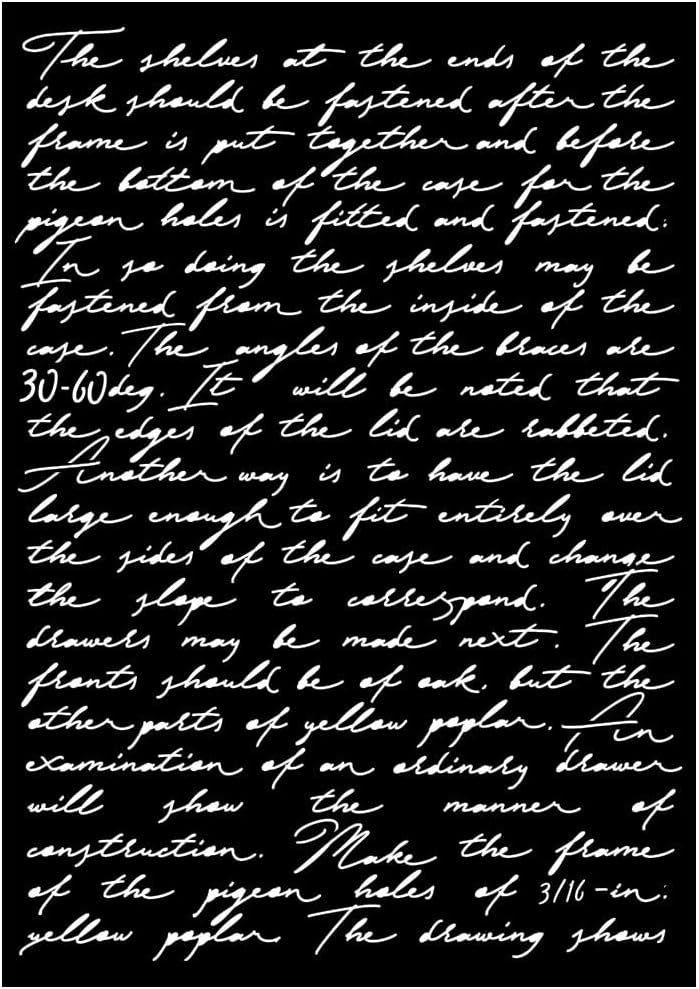 The shelves at the ends of the
desk should be fastened after the
frame is put together and before
the bottom of the case for the
pigeon holes is fitted and fastened.
In so doing the shelves may be
fastened from the inside of the
case. The angles of the braces are
30-60 deg. It will be noted that
the edges of the lid are rabbeted.
Another way is to have the lid
large enough to fit entirely over
the sides of the case and change
the slope to correspond. The
drawers may be made next. The
fronts should be of oak, but the
other parts of yellow poplar. An
examination of an ordinary drawer
will show the manner of
construction. Make the frame
of the pigeon holes of 3/16-in.
yellow poplar. The drawing shows